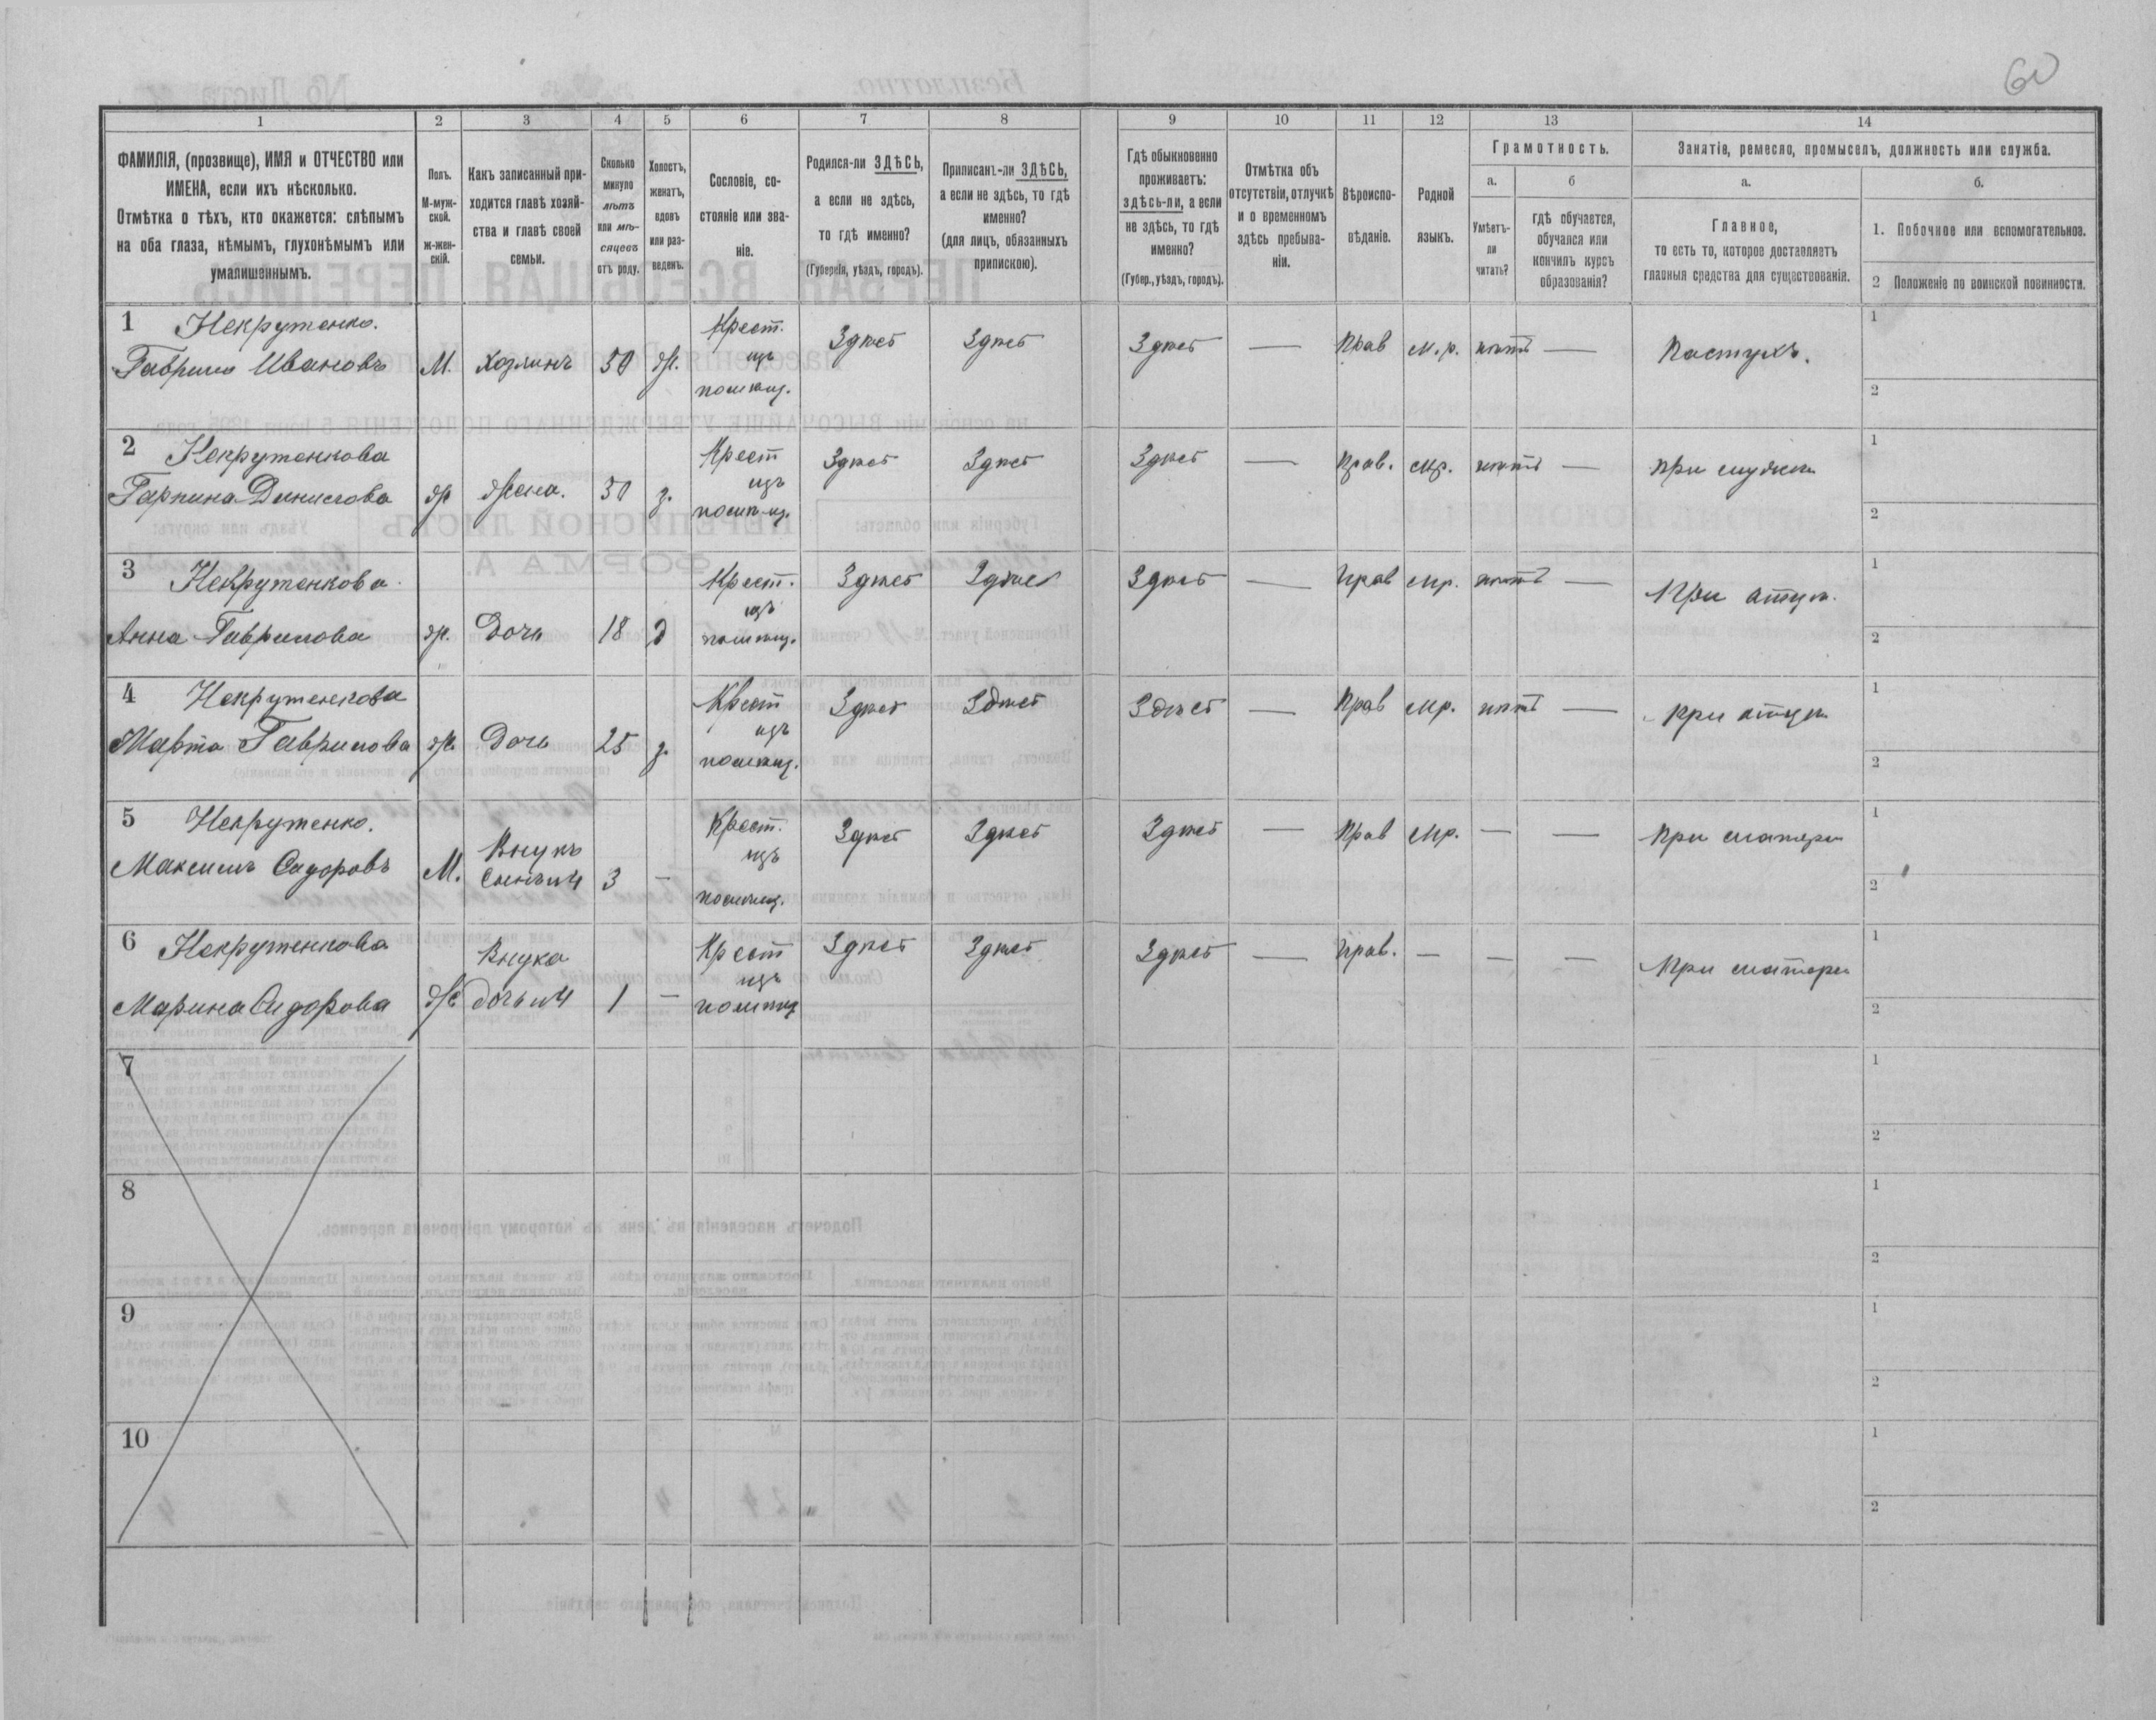 60
1
2
3
4
5
6
7
8
9
10
11
12
13
14
ФАМИЛІЯ, (прозвище), ИМЯ и ОТЧЕСТВО или
ИМЕНА, если ихъ нѣсколько.
Отмѣтка о тѣхъ, кто окажется: слѣпымъ
на оба глаза, нѣмымъ, глухонѣмымъ или
умалишеннымъ.
Полъ.
М-муж-
ской.
ж-жен-
скій.
Какъ записанный при-
ходится главѣ хозяй-
ства и главѣ своей
семьи.
Сколько
минуло
лѣтъ
или мѣ-
сяцевъ
отъ роду.
Холостъ,
женатъ,
вдовъ
или раз-
веденъ.
Сословіе, со-
стояніе или зва-
ніе.
Родился-ли ЗДѢСЬ,
а если не здѣсь,
то гдѣ именно?
(Губернія, уѣздъ, городъ).
Приписанъ-ли ЗДѢСЬ,
а если не здѣсь, то гдѣ
именно?
(для лицъ, обязанныхъ
припискою).
Гдѣ обыкновенно
проживаетъ:
здѣсь-ли, а если
не здѣсь, то гдѣ
именно?
(Губер., уѣздъ, городъ).
Отмѣтка объ
отсутствіи, отлучкѣ
и о временномъ
здѣсь пребыва-
ніи.
Вѣроиспо-
вѣданіе.
Родной
языкъ.
Грамотность.
а.
Умѣетъ-
ли
читать?
б
гдѣ обучается,
обучался или
кончилъ курсъ
образованія?
Занятіе, ремесло, промыселъ, должность или служба.
а.
Главное,
то есть то, которое доставляетъ
главныя средства для существованія.
б.
1. Побочное или вспомогательное.
2 Положеніе по воинской повинности.
1 Некрутенко. Крест. Здѣсь Здѣсь Здѣсь — Прав м.р. нѣтъ — Пастухъ. 1
Гаврило Ивановъ М. Хозяинъ 50 ж. изъ
помѣщ. 2
2 Некрутенкова Крест Здѣсь Здѣсь Здѣсь — Прав. мр. нѣтъ — При мужѣ 1
Гарпина Денисова ж жена. 50 з. изъ
помѣщ. 2
3 Некрутенкова Крест. Здѣсь Здѣсь Здѣсь — Прав мр. нѣтъ — При отцѣ. 1
Анна Гаврилова ж. Дочь 18 д изъ
помѣщ. 2
4 Некрутенкова Крест Здѣсь Здѣсь Здѣсь — Прав мр. нѣтъ — При отцѣ 1
Марта Гаврилова ж. Дочь 25 з. изъ
помѣщ. 2
5 Некрутенко. Крест. Здѣсь Здѣсь Здѣсь — Прав мр. — — При матери 1
Максимъ Сидоровъ М. Внукъ
сынъ № 4 3 — изъ
помѣщ. 2
6 Некрутенкова Внука Крест Здѣсь Здѣсь Здѣсь — Прав. — — — При матери 1
Марина Сидорова ж дочь № 4 1 — изъ
помѣщ 2
7 1
2
8 1
2
9 1
2
10 1
2